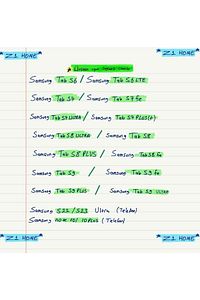 Z1 HOME Z1 HOME
Samsung Tab S6 / Samsung Tab S6 LITE
Samsung Tab S7 / Samsung Tab S7 fe
Samsung Tab S7 ULTRA / Samsung Tab S7 PLUS(+)
Samsung Tab S8 ULTRA / Samsung Tab S8
Samsung Tab S8 PLUS / Samsung Tab S8 fe
Samsung Tab S9 / Samsung Tab S9 fe
Samsung Tab S9 PLUS / Samsung Tab S9 ULTRA
Samsung S22 / S23 Ultra (Telefon)
Samsung note 10 / 10 PLUS (Telefon)
Z1 HOME Z1 HOME